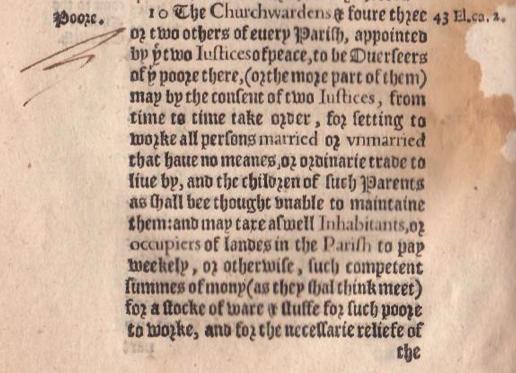 Poore.
10 The Churchwardens & foure three
43 El.ca. 2.
or two others of euery Parish, appointed
by yͤ two Iustices of peace, to be Ouerseers
of yͤ poore there, (or the more part of them)
may by the consent of two Iustices, from
time to time take order, for setting to
worke all persons married or vnmarried
that haue no meanes, or ordinarie trade to
liue by, and the children of such Parents
as shall bee thought vnable to maintaine
them: and may taxe aswell Inhabitants, or
occupiers of landes in the Parish to pay
weekely, or otherwise, such competent
summes of mony (as they shal think meet)
for a stocke of ware & stuffe for such poore
to worke, and for the necessarie reliefe of
the